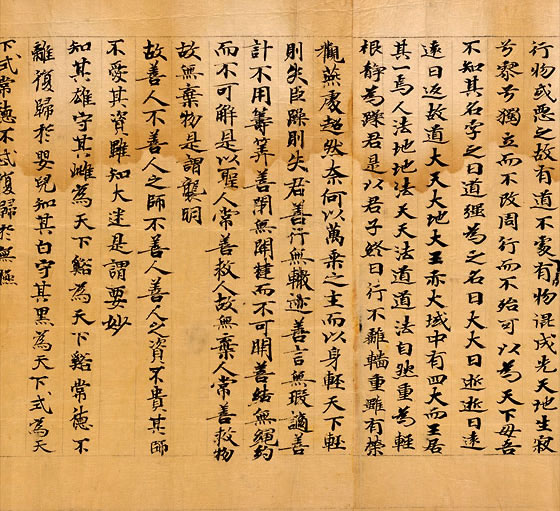 行物或惡之故有道不處有物混成先天地生寂
兮寥兮獨立而不改周行而不殆可以為天下母吾
不知其名字之曰道强為之名曰大大曰逝逝曰遠
遠曰返故道大天大地大王亦大域中有四大而王居
其一焉人法地地法天天法道道法自然重為輕
根静為躁君是以君子終日行不離輜重雖有榮
觀燕處超然奈何以萬乘之主而以身輕天下輕
則失臣躁則失君善行無轍迹善言無瑕適善
計不用籌筭善閉無關揵而不可開善結無繩約
而不可解是以聖人常善救人故無棄人常善救物
故無棄物是謂襲明
故善人不善人之師不善人善人之資不貴其師
不愛其資雖知大迷是謂要妙
知其雄守其雌為天下谿為天下谿常德不
離復歸於嬰兒知其白守其黑為天下式為天
下式常德不忒復歸於無極